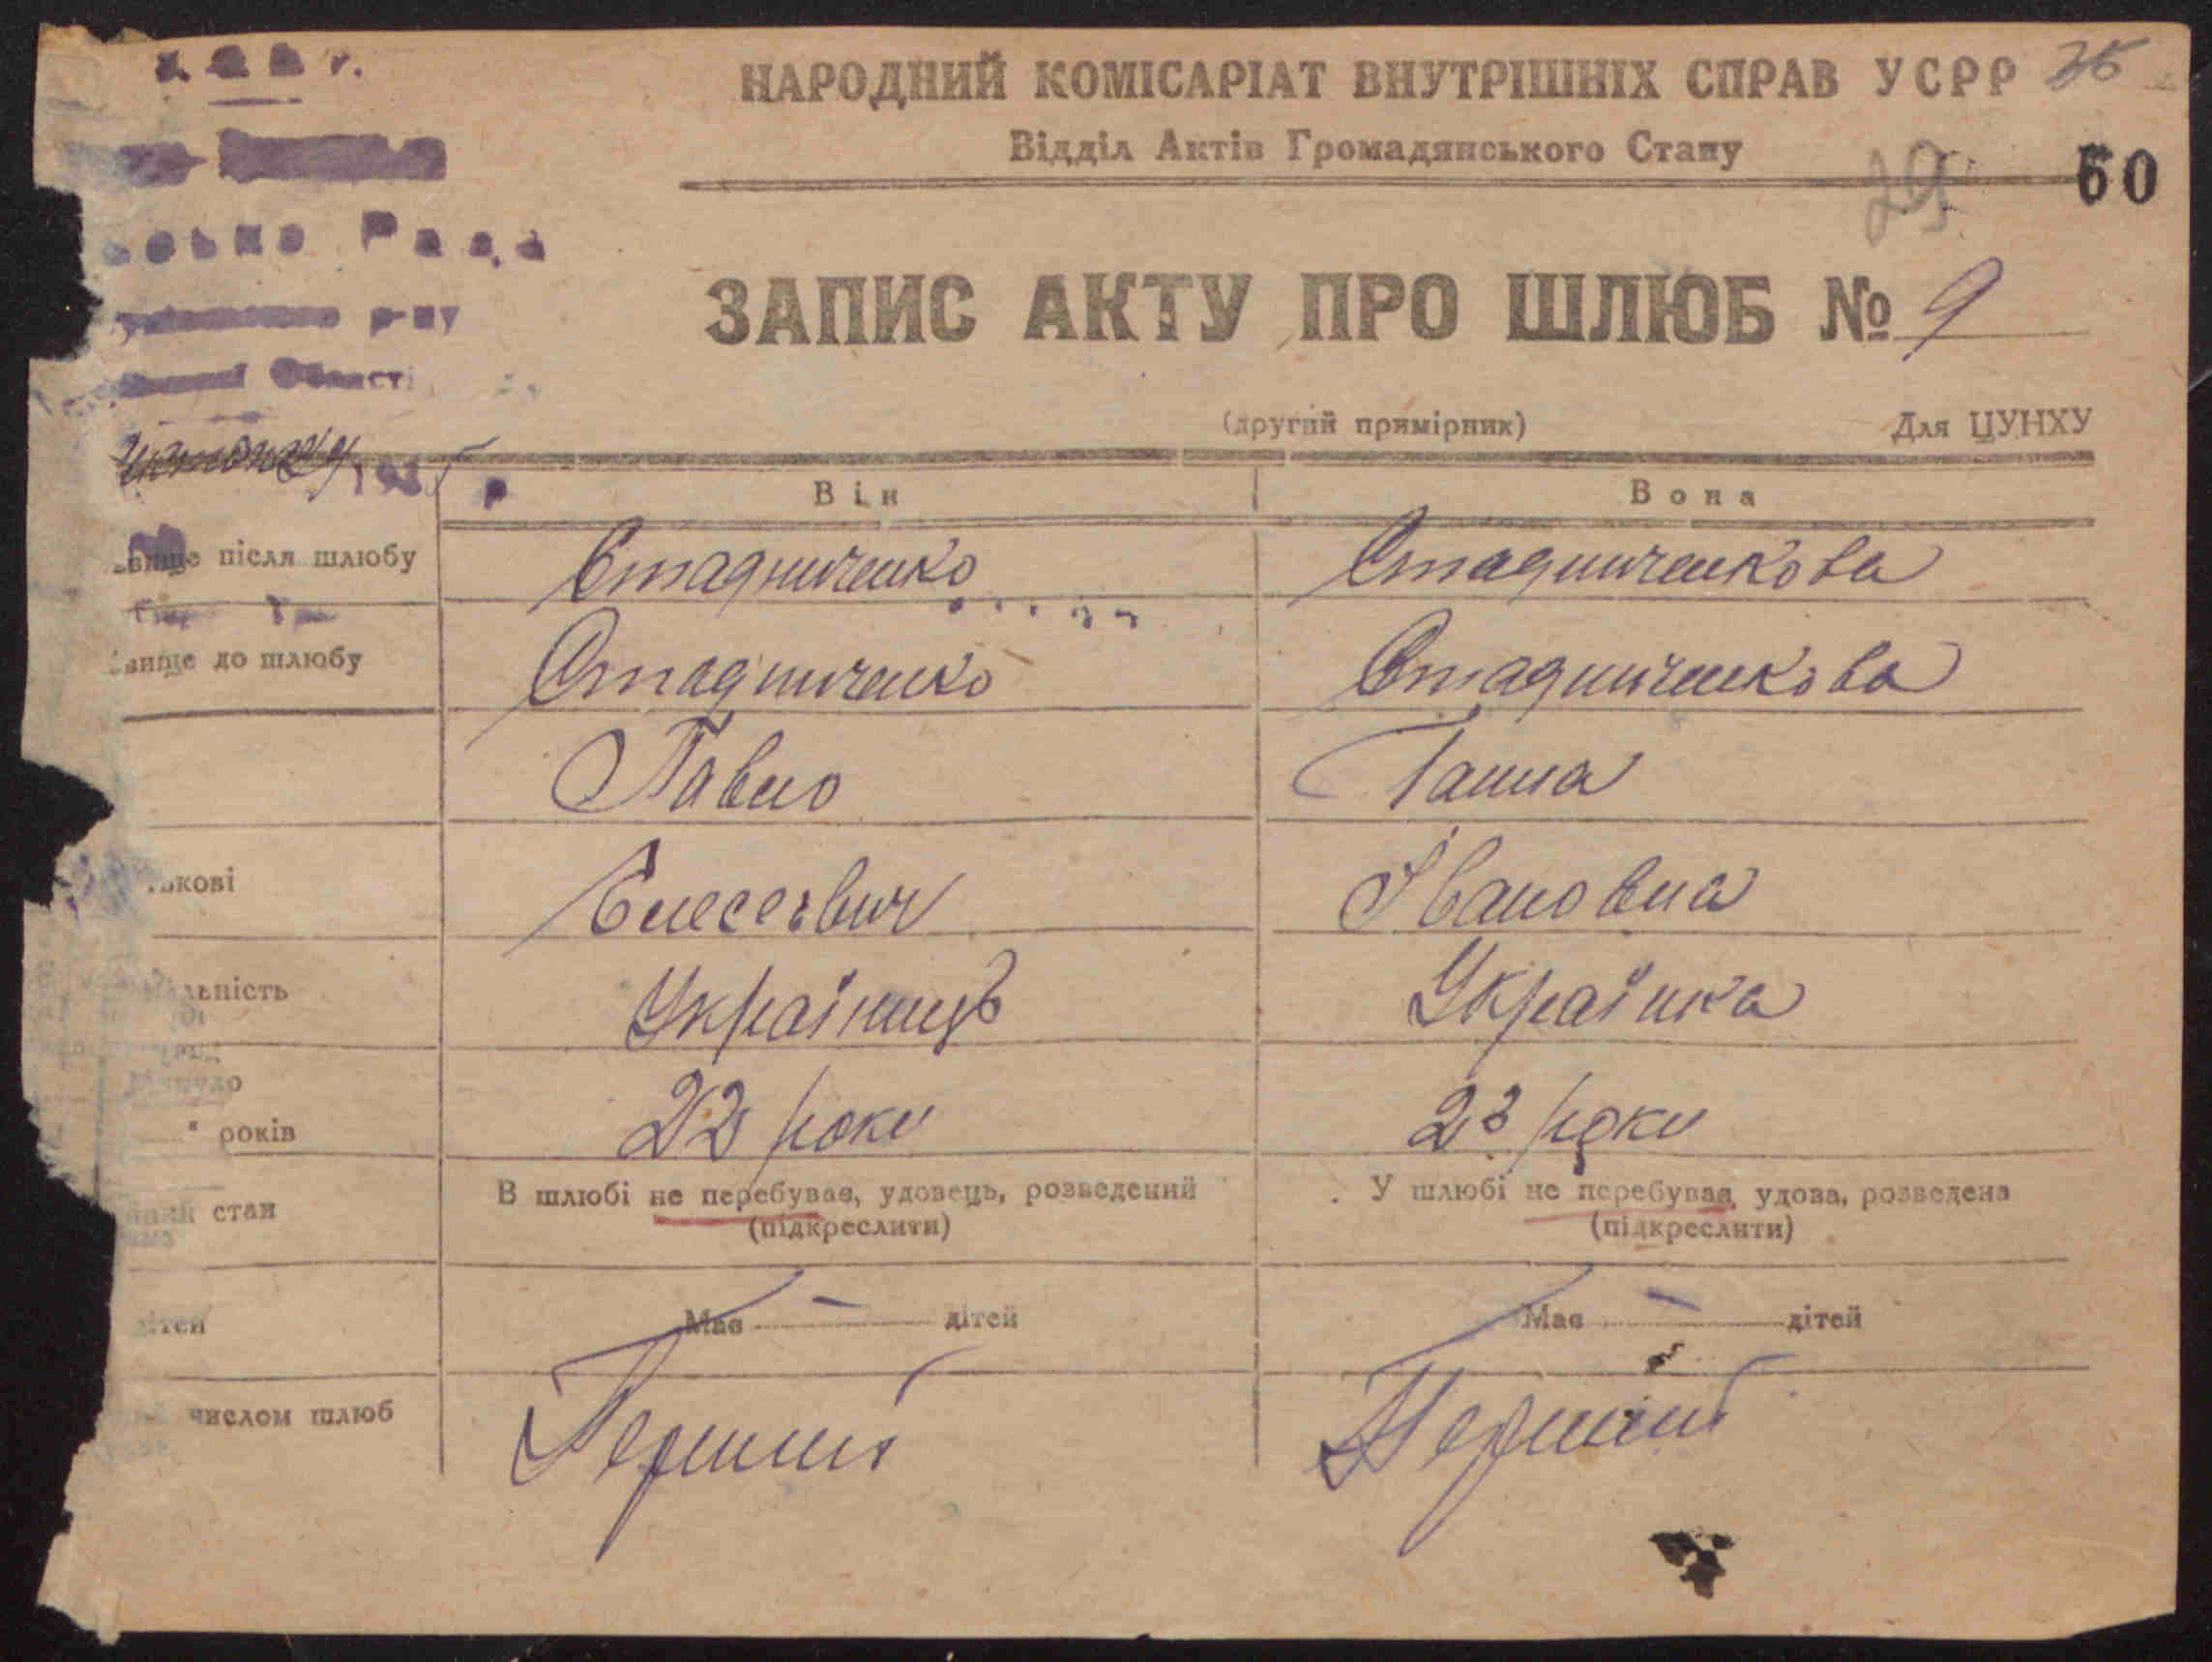 НАРОДНИЙ КОМІСАРІАТ ВНУТРІШНІХ СПРАВ УСРР
Відділ Актів Громадянського Стану
29
60
Рада
р-ну
Області
ЗАПИС АКТУ ПРО ШЛЮБ № 9
(другий примірник) Для ЦУНХУ
Він Вона
звище після шлюбу Стадниченко Стадниченкова
звище до шлюбу Стадниченко Стадниченкова
Павло Ганна
ькові Елесеєвич Івановна
льність Українець Українка
Минуло
" років 22 роки 23 роки
стан В шлюбі не перебував, удовець, розведений У шлюбі не перебувая, удова, розведена
(підкреслити) (підкреслити)
дітей Має — дітей Має — дітей
числом шлюб Перший Перший